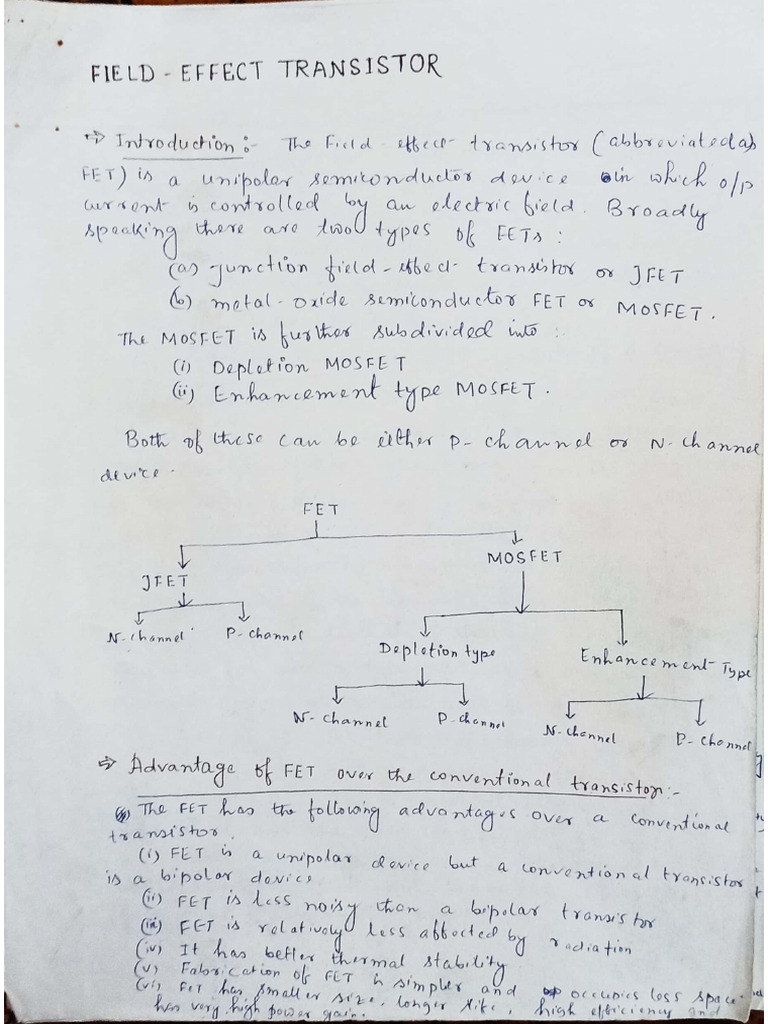 FIELD - EFFECT TRANSISTOR
⇒ Introduction :- The Field effect transistor (abbreviated as
FET) is a unipolar semiconductor device in which o/p
current is controlled by an electric field. Broadly
speaking there are two types of FETs :
(a) Junction field-effect transistor or JFET
(b) metal-oxide semiconductor FET or MOSFET.
The MOSFET is further subdivided into :
(i) Depletion MOSFET
(ii) Enhancement type MOSFET.
Both of these can be either P-channel or N-channel
device.
FET
MOSFET
JFET
N-channel P-channel
Depletion type Enhancement Type
N-channel P-channel N-channel P-channel
⇒ Advantage of FET over the conventional transistor :-
The FET has the following advantages over a conventional
transistor.
(i) FET is a unipolar device but a conventional transistor
is a bipolar device
(ii) FET is less noisy than a bipolar transistor
(iii) FET is relatively less affected by radiation
(iv) It has better thermal stability
(v) Fabrication of FET is simpler and occupies less space
(vi) FET has smaller size, longer life, high efficiency and
has very high power gain.